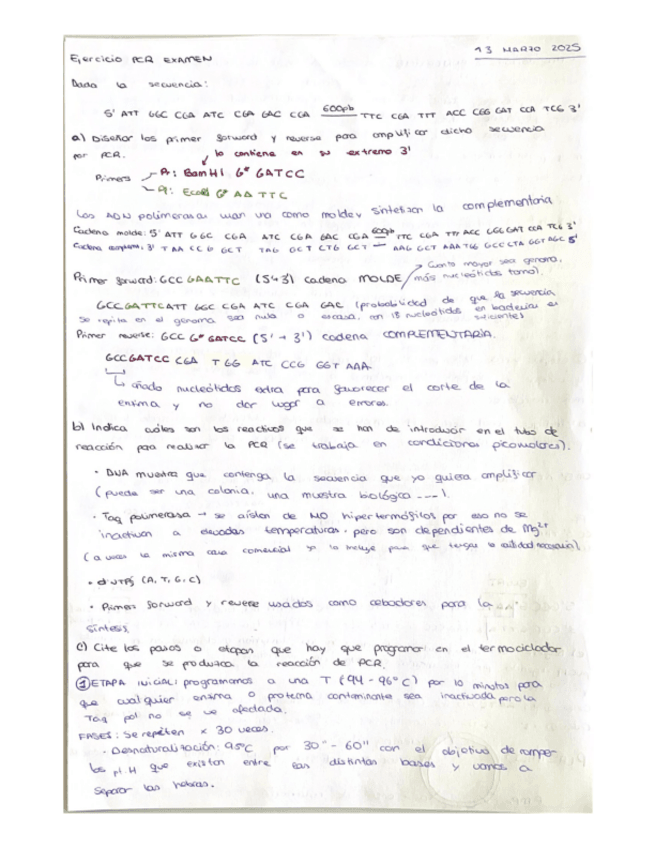 13 MARZO 2025
Ejercicio PCR EXAMEN
Dada la secuencia:
5' ATT GGC CGA ATC CGA GAC CGA 600pb TTC CGA TTT ACC CGG GAT CCA TCG 3'
a) Diseñar los primer forward y reverse para amplificar dicha secuencia
por PCR. lo contiene en su extremo 3'
Primers R: BamHI G* GATCC
EcoRI G* AA TTC
Las ADN polimerasas usan una como molde y sintetizan la complementaria
Cadena molde: 5' ATT GGC CGA ATC CGA GAC CGA 600pb TTC CGA TTT ACC CGG GAT CCA TCG 3'
3' TAA CCG GCT TAG GCT CTG GCT — AAG GCT AAA TGG GCC CTA GGT AGC 5'
Cuanto mayor sea genoma,
Primer forward: GCC GAATTC (5→3) cadena MOLDE más nucleótidos tomo).
GCCGATTCATT GGC CGA ATC CGA GAC (probabilidad de que la secuencia
se repita en el genoma sea nula o escasa, con 18 nucleótidos en bacterias es suficiente)
Primer reverse: GCC G* GATCC (5' → 3') cadena COMPLEMENTARIA.
GCCGATCC CGA TGG ATC CCG GGT AAA
añado nucleótidos extra para favorecer el corte de la
enzima y no dar lugar a errores.
b) Indica cuáles son los reactivos que se han de introducir en el tubo de
reacción para realizar la PCR (se trabaja en condiciones picomolares).
• DNA muestra que contenga la secuencia que yo quiera amplificar
(puede ser una colonia, una muestra biológica ---).
• Taq polimerasa → se aíslan de MO hipertermófilos por eso no se
inactivan a elevadas temperaturas. pero son dependientes de Mg2+
(a veces la misma casa comercial ya la incluye para que tengas la cantidad necesaria)
• dNTPs (A, T, G, C)
• Primers forward y reverse usados como cebadores para la
síntesis
c) Cite los pasos o etapas que hay que programar en el termociclador
para que se produzca la reacción de PCR.
① ETAPA INICIAL: programamos a una T (94 - 96°C) por 10 minutos para
que cualquier enzima o proteína contaminante sea inactivada pero la
Taq pol no se ve afectada.
FASES: Se repiten x 30 veces.
• Desnaturalización: 95°C por 30" - 60" con el objetivo de romper
los pt. H que existan entre las distintas bases y vamos a
separar las hebras.